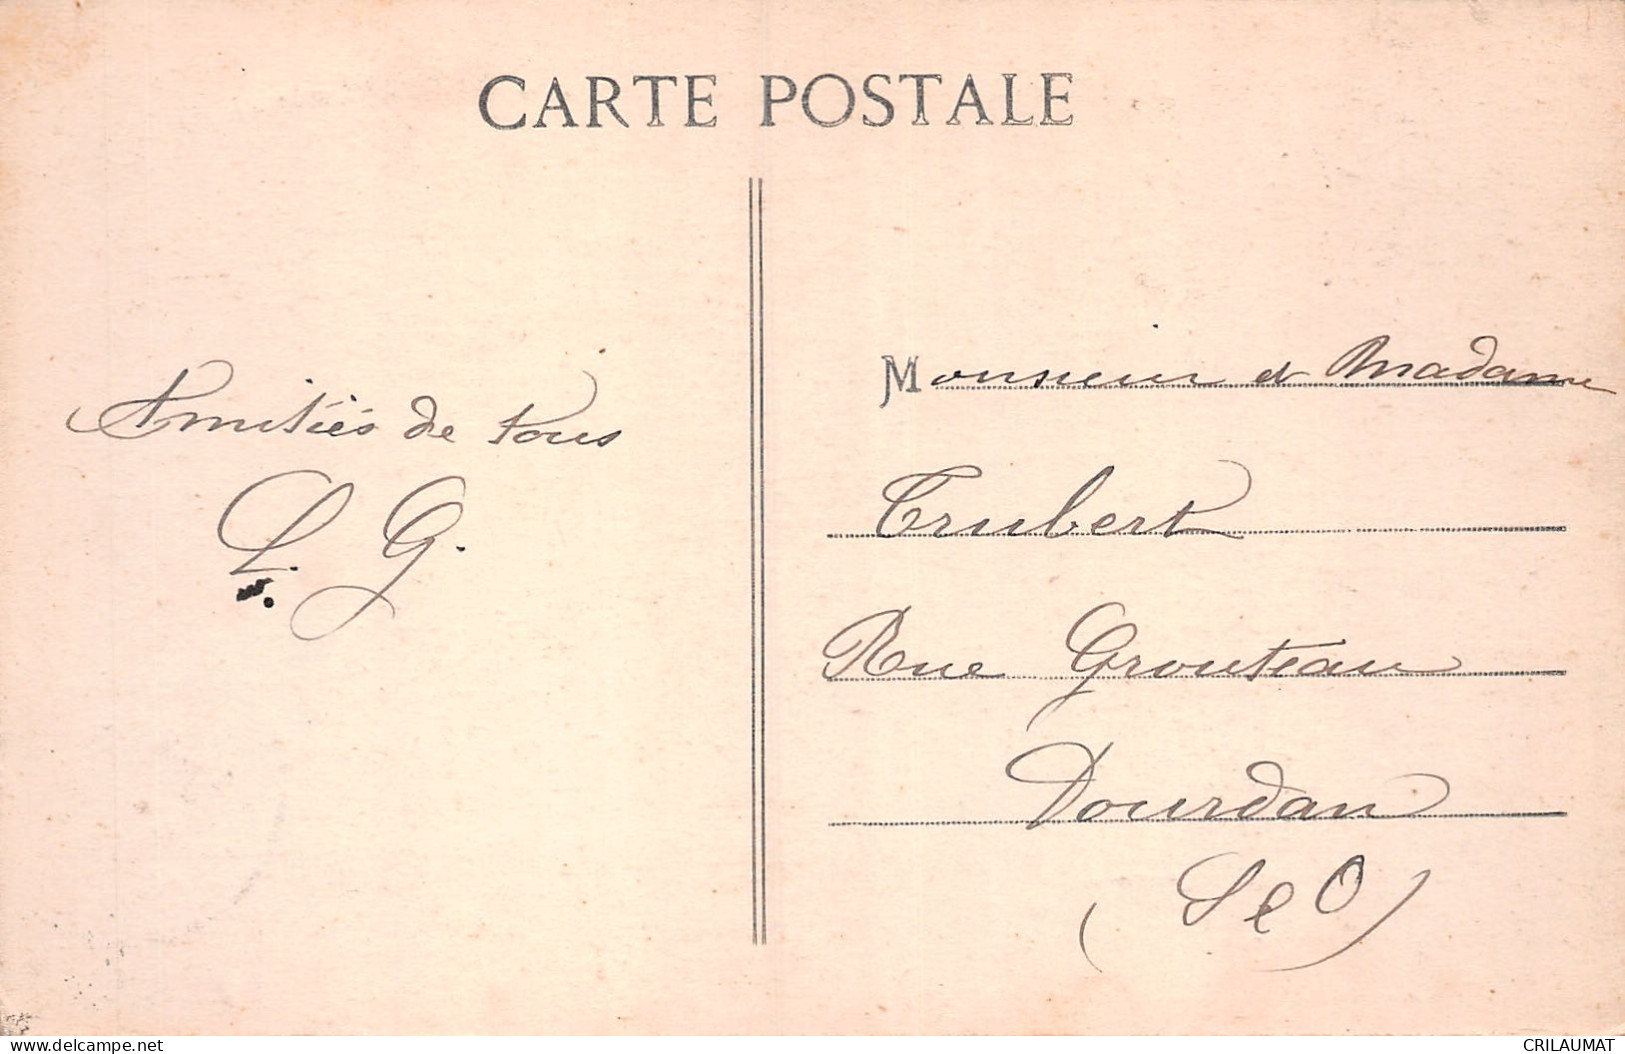 CARTE POSTALE
Amitiés de tous
L. G.
Monsieur et Madame
Trubert
Rue Grouteau
Dourdan
(S e O)
www.delcampe.net
CRILAUMAT